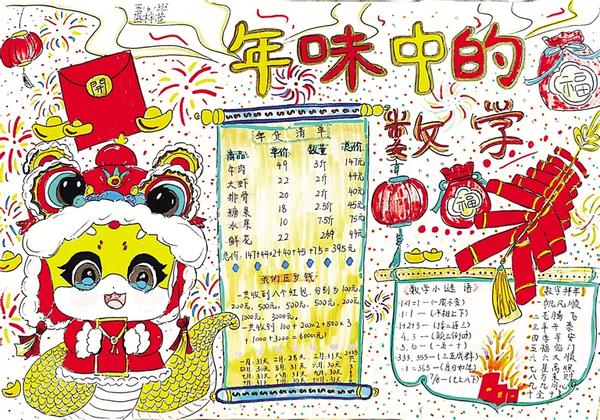 五(6)班
年味中的
数学
開
福
福
年货清单
商品: 单价: 数量: 总价:
牛肉 49 3斤 147元
大虾 22 2斤 44元
排骨 20 2斤 40元
糖果 18 2.5斤 45元
水果 10 7.5斤 75元
鲜花 22 2枝 44元
总价: 147+44+40+45+75+44=395元
我的压岁钱
一共收到八个红包,分别为100元,
200元,500元,500元,500元,200元
1000元,3000元。
一共收到 100+200×2+500×3
+1000+3000=6000(元)
数学小谜语
1×1=1 (一成不变)
1:1 (不相上下)
1+2+3 (接二连三)
333,555 (三五成群)
1=365 (度日如年)
7/8 (七上八下)
数字拜年
一帆风顺
二龙腾飞
三羊开泰
四季平安
五福临门
六六大顺
七星高照
八方来财
九九同心
十全十美